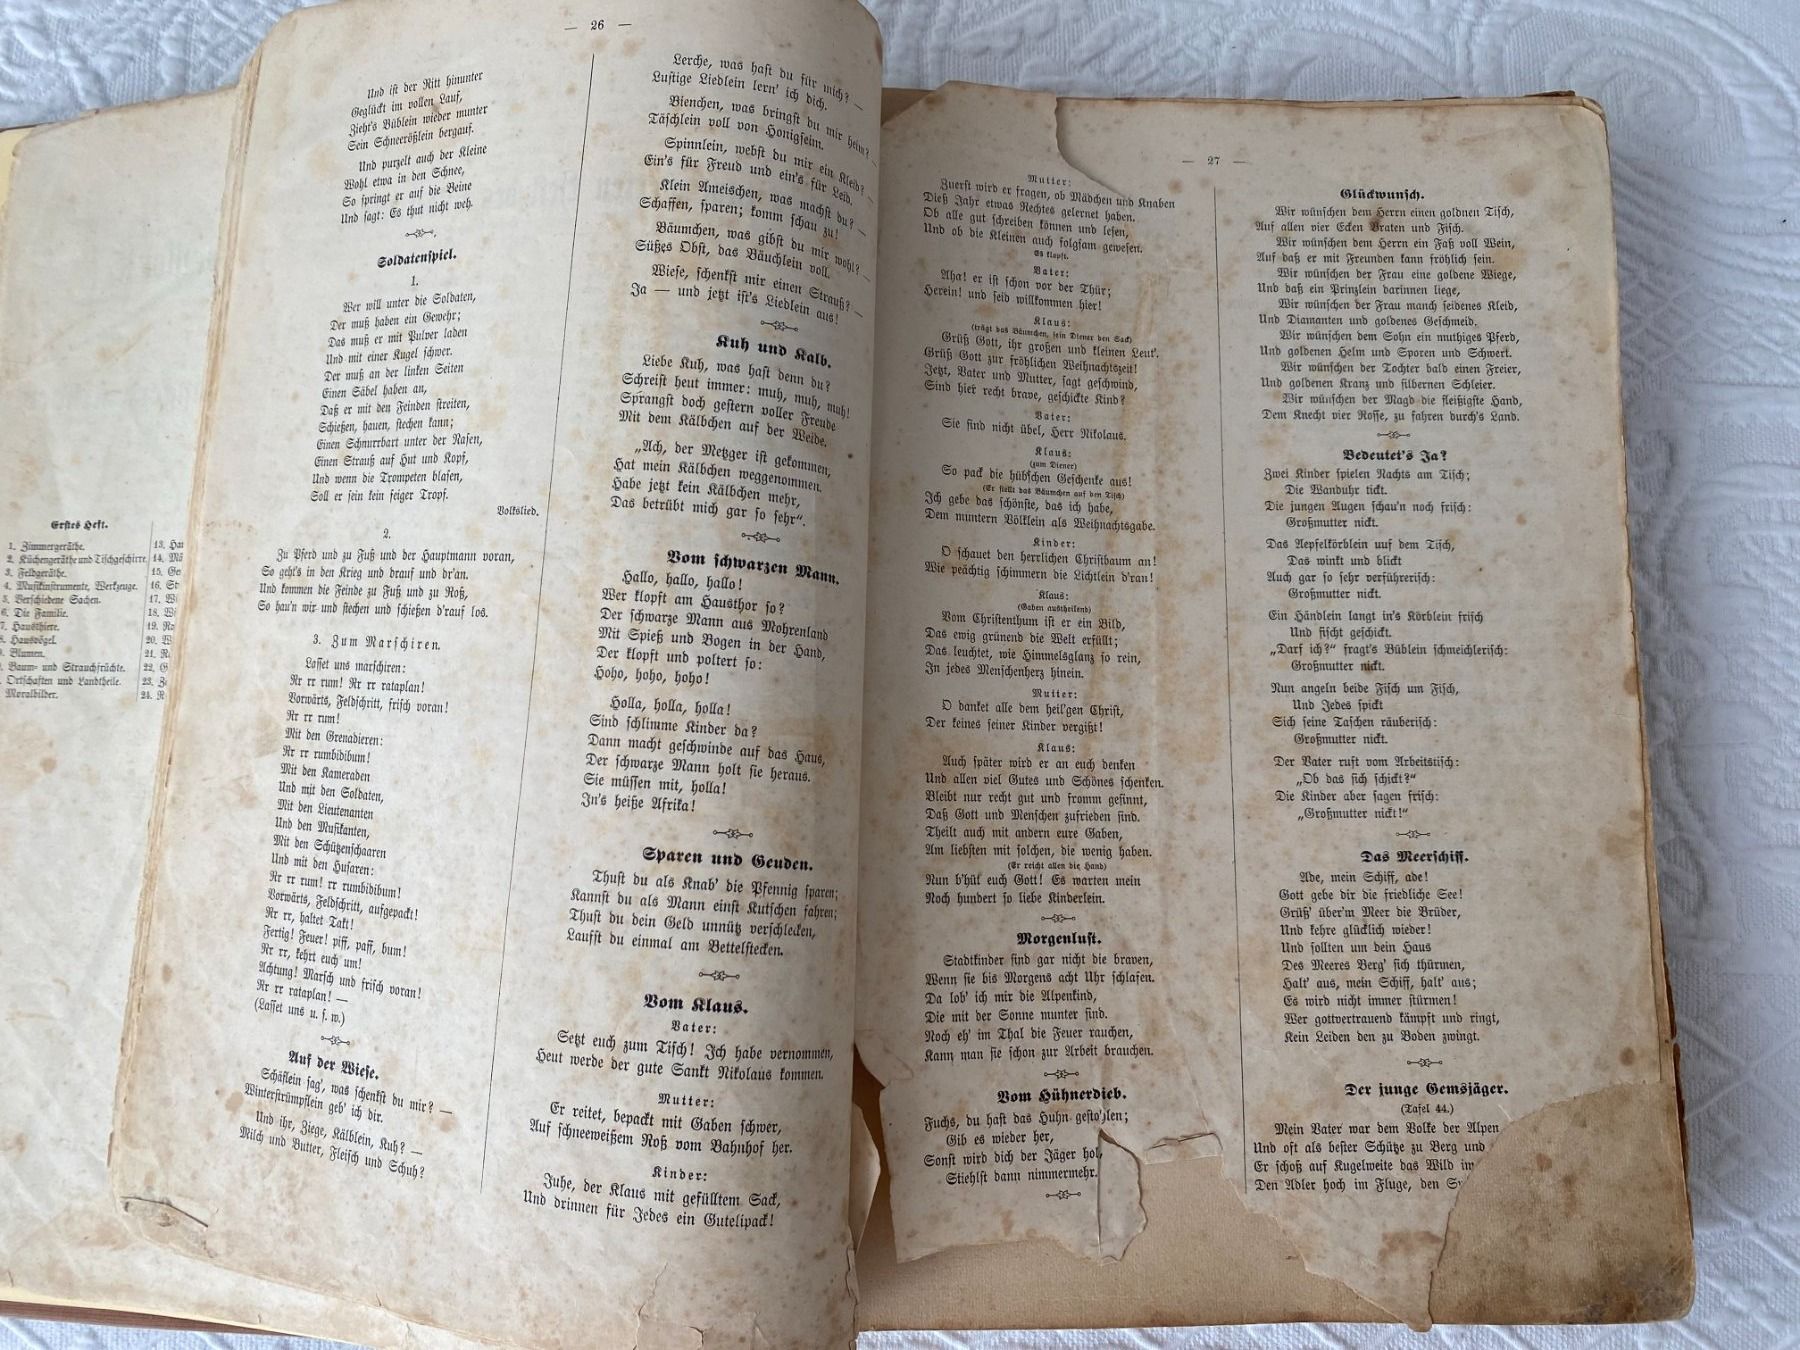 Erstes Heft.
1. Zimmergeräthe.
2. Küchengeräthe und Tischgeschirre.
3. Feldgeräthe.
4. Musikinstrumente, Werkzeuge.
5. Verschiedene Sachen.
6. Die Familie.
7. Hausthiere.
8. Hausvögel.
Blumen.
Baum- und Strauchfrüchte.
Ortschaften und Landtheile.
Moralbilder.
13.
14.
15.
16.
17.
18.
19.
20.
21.
22.
23.
24.
— 26 —
Und ist der Ritt hinunter
Geglückt im vollen Lauf,
Zieht's Büblein wieder munter
Sein Schneerößlein bergauf.
Und purzelt auch der Kleine
Wohl etwa in den Schnee,
So springt er auf die Beine
Und sagt: Es thut nicht weh.
Soldatenspiel.
1.
Wer will unter die Soldaten,
Der muß haben ein Gewehr;
Das muß er mit Pulver laden
Und mit einer Kugel schwer.
Der muß an der linken Seiten
Einen Säbel haben an,
Daß er mit den Feinden streiten,
Schießen, hauen, stechen kann;
Einen Schnurrbart unter der Nasen,
Einen Strauß auf Hut und Kopf,
Und wenn die Trompeten blasen,
Soll er sein kein feiger Tropf.
Volkslied.
2.
Zu Pferd und zu Fuß und der Hauptmann voran,
So geht's in den Krieg und drauf und dr'an.
Und kommen die Feinde zu Fuß und zu Roß,
So hau'n wir und stechen und schießen d'rauf los.
3. Zum Marschiren.
Lasset uns marschiren:
Rr rr rum! Rr rr rataplan!
Vorwärts, Feldschritt, frisch voran!
Rr rr rum!
Mit den Grenadieren:
Rr rr rumbidibum!
Mit den Kameraden
Und mit den Soldaten,
Mit den Lieutenanten
Und den Musikanten,
Mit den Schützenschaaren
Und mit den Husaren:
Rr rr rum! rr rumbidibum!
Vorwärts, Feldschritt, aufgepackt!
Rr rr, haltet Takt!
Fertig! Feuer! piff, paff, bum!
Rr rr, kehrt euch um!
Achtung! Marsch und frisch voran!
Rr rr rataplan! —
(Lasset uns u. s. w.)
Auf der Wiese.
Schäflein sag', was schenkst du mir? —
Winterstrümpflein geb' ich dir.
Und ihr, Ziege, Kälblein, Kuh? —
Milch und Butter, Fleisch und Schuh?
Lerche, was hast du für mich? —
Lustige Liedlein lern' ich dich.
Bienchen, was bringst du mir heim? —
Täschlein voll von Honigseim.
Spinnlein, webst du mir ein Kleid? —
Ein's für Freud und ein's für Leid.
Klein Ameischen, was machst du? —
Schaffen, sparen; komm schau zu!
Bäumchen, was gibst du mir wohl? —
Süßes Obst, das Bäuchlein voll.
Wiese, schenkst mir einen Strauß? —
Ja — und jetzt ist's Liedlein aus!
Kuh und Kalb.
Liebe Kuh, was hast denn du?
Schreist heut immer: muh, muh, muh!
Sprangst doch gestern voller Freude
Mit dem Kälbchen auf der Weide.
„Ach, der Metzger ist gekommen,
Hat mein Kälbchen weggenommen.
Habe jetzt kein Kälbchen mehr,
Das betrübt mich gar so sehr“.
Vom schwarzen Mann.
Hallo, hallo, hallo!
Wer klopft am Hausthor so?
Der schwarze Mann aus Mohrenland
Mit Spieß und Bogen in der Hand,
Der klopft und poltert so:
Hoho, hoho, hoho!
Holla, holla, holla!
Sind schlimme Kinder da?
Dann macht geschwinde auf das Haus,
Der schwarze Mann holt sie heraus.
Sie müssen mit, holla!
In's heiße Afrika!
Sparen und Geuden.
Thust du als Knab' die Pfennig sparen;
Kannst du als Mann einst Kutschen fahren;
Thust du dein Geld unnütz verschlecken,
Laufst du einmal am Bettelstecken.
Vom Klaus.
Vater:
Setzt euch zum Tisch! Ich habe vernommen,
Heut werde der gute Sankt Nikolaus kommen.
Mutter:
Er reitet, bepackt mit Gaben schwer,
Auf schneeweißem Roß vom Bahnhof her.
Kinder:
Juhe, der Klaus mit gefülltem Sack,
Und drinnen für Jedes ein Gutelipack!
— 27 —
Mutter:
Zuerst wird er fragen, ob Mädchen und Knaben
Dieß Jahr etwas Rechtes gelernet haben.
Ob alle gut schreiben können und lesen,
Und ob die Kleinen auch folgsam gewesen.
Es klopft.
Vater:
Aha! er ist schon vor der Thür;
Herein! und seid willkommen hier!
Klaus:
(trägt das Bäumchen, sein Diener den Sack)
Grüß Gott, ihr großen und kleinen Leut'.
Grüß Gott zur fröhlichen Weihnachtszeit!
Jetzt, Vater und Mutter, sagt geschwind,
Sind hier recht brave, geschickte Kind?
Vater:
Sie sind nicht übel, Herr Nikolaus.
Klaus:
(zum Diener)
So pack die hübschen Geschenke aus!
(Er stellt das Bäumchen auf den Tisch)
Ich gebe das schönste, das ich habe,
Dem muntern Völklein als Weihnachtsgabe.
Kinder:
O schauet den herrlichen Christbaum an!
Wie peächtig schimmern die Lichtlein d'ran!
Klaus:
(Gaben austheilend)
Vom Christenthum ist er ein Bild,
Das ewig grünend die Welt erfüllt;
Das leuchtet, wie Himmelsglanz so rein,
In jedes Menschenherz hinein.
Mutter:
O danket alle dem heil'gen Christ,
Der keines seiner Kinder vergißt!
Klaus:
Auch später wird er an euch denken
Und allen viel Gutes und Schönes schenken.
Bleibt nur recht gut und fromm gesinnt,
Daß Gott und Menschen zufrieden sind.
Theilt auch mit andern eure Gaben,
Am liebsten mit solchen, die wenig haben.
(Er reicht allen die Hand)
Nun b'hüt euch Gott! Es warten mein
Noch hundert so liebe Kinderlein.
Morgenlust.
Stadtkinder sind gar nicht die braven,
Wenn sie bis Morgens acht Uhr schlafen.
Da lob' ich mir die Alpenkind,
Die mit der Sonne munter sind.
Noch eh' im Thal die Feuer rauchen,
Kann man sie schon zur Arbeit brauchen.
Vom Hühnerdieb.
Fuchs, du hast das Huhn gestohlen;
Gib es wieder her,
Sonst wird dich der Jäger hol
Stiehlst dann nimmermehr.
Glückwunsch.
Wir wünschen dem Herrn einen goldnen Tisch,
Auf allen vier Ecken Braten und Fisch.
Wir wünschen dem Herrn ein Faß voll Wein,
Auf daß er mit Freunden kann fröhlich sein.
Wir wünschen der Frau eine goldene Wiege,
Und daß ein Prinzlein darinnen liege,
Wir wünschen der Frau manch seidenes Kleid,
Und Diamanten und goldenes Geschmeid.
Wir wünschen dem Sohn ein muthiges Pferd,
Und goldenen Helm und Sporen und Schwert.
Wir wünschen der Tochter bald einen Freier,
Und goldenen Kranz und silbernen Schleier.
Wir wünschen der Magd die fleißigste Hand,
Dem Knecht vier Rosse, zu fahren durch's Land.
Bedeutet's Ja?
Zwei Kinder spielen Nachts am Tisch;
Die Wanduhr tickt.
Die jungen Augen schau'n noch frisch:
Großmutter nickt.
Das Aepfelkörblein auf dem Tisch,
Das winkt und blickt
Auch gar so sehr verführerisch:
Großmutter nickt.
Ein Händlein langt in's Körblein frisch
Und fischt geschickt.
„Darf ich?“ fragt's Büblein schmeichlerisch:
Großmutter nickt.
Nun angeln beide Fisch um Fisch,
Und Jedes spickt
Sich seine Taschen räuberisch:
Großmutter nickt.
Der Vater ruft vom Arbeitstisch:
„Ob das sich schickt?“
Die Kinder aber sagen frisch:
„Großmutter nickt!“
Das Meerschiff.
Ade, mein Schiff, ade!
Gott gebe dir die friedliche See!
Grüß' über'm Meer die Brüder,
Und kehre glücklich wieder!
Und sollten um dein Haus
Des Meeres Berg' sich thürmen,
Halt' aus, mein Schiff, halt' aus;
Es wird nicht immer stürmen!
Wer gottvertrauend kämpft und ringt,
Kein Leiden den zu Boden zwingt.
Der junge Gemsjäger.
(Tafel 44.)
Mein Vater war dem Volke der Alpen
Und oft als bester Schütze zu Berg und
Er schoß auf Kugelweite das Wild im
Den Adler hoch im Fluge, den